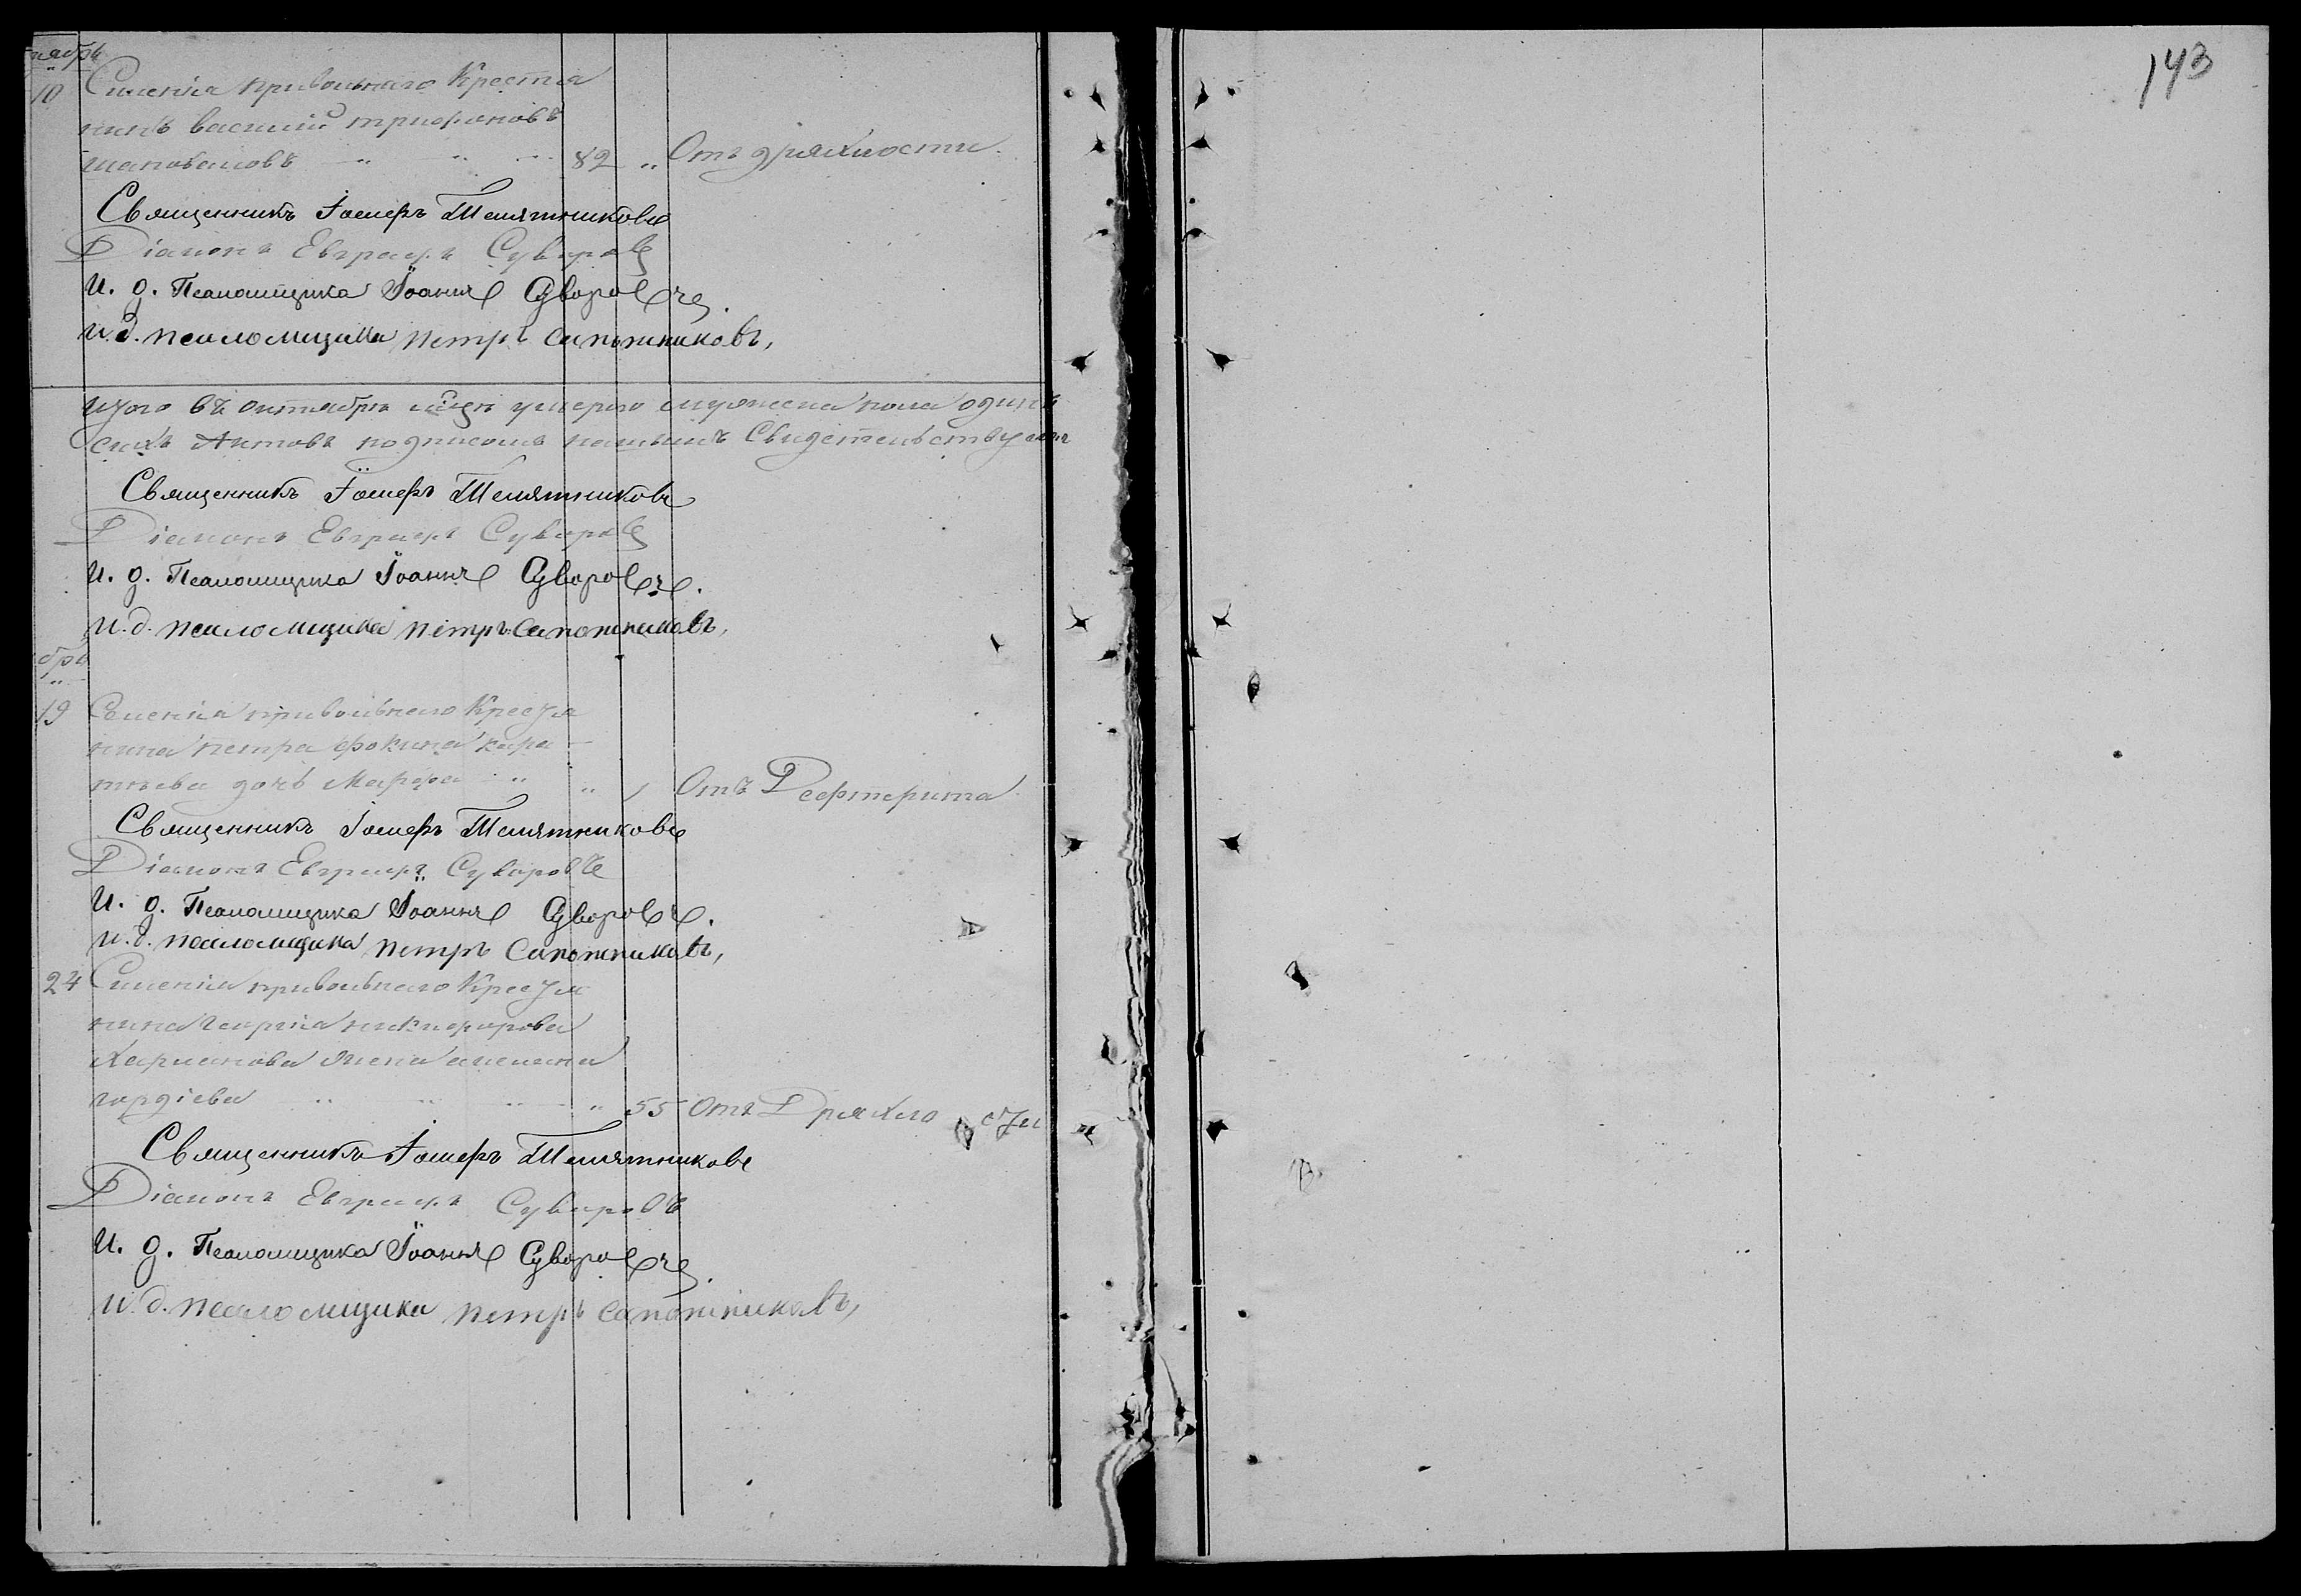 143
тябрь
10 Селенія привольнаго Крестья
нинъ василий трифоновъ
шаповаловъ 82 Отъ дряхлости.
Священникъ Іосифъ Телятниковъ
Діаконъ Евграфъ Суворовъ
И. д. Псаломщика Іоаннъ Суворовъ.
и.д. псаломщика петръ сапожниковъ,
итого въ октябрѣ умерло мужеска пола одинъ
сихъ Актовъ подписомъ нашимъ Свидетельствуемъ
Священникъ Іосифъ Телятниковъ
Діаконъ Евграфъ Суворовъ
И. д. Псаломщика Іоаннъ Суворовъ.
и.д. псаломщика петръ сапожниковъ,
брь
19 Селенія привольнаго Крестья
нина петра фокина кара
тьева дочь Марфа 1 Отъ Дефтерита
Священникъ Іосифъ Телятниковъ
Діаконъ Евграфъ Суворовъ
И. д. Псаломщика Іоаннъ Суворовъ.
и.д. псаломщика петръ сапожниковъ,
24 Селенія привольнаго Крестья
нина никифорова
жена
гордіева 55 Отъ Дряхло сти
Священникъ Іосифъ Телятниковъ
Діаконъ Евграфъ Суворовъ
И. д. Псаломщика Іоаннъ Суворовъ.
и.д. псаломщика петръ сапожниковъ,